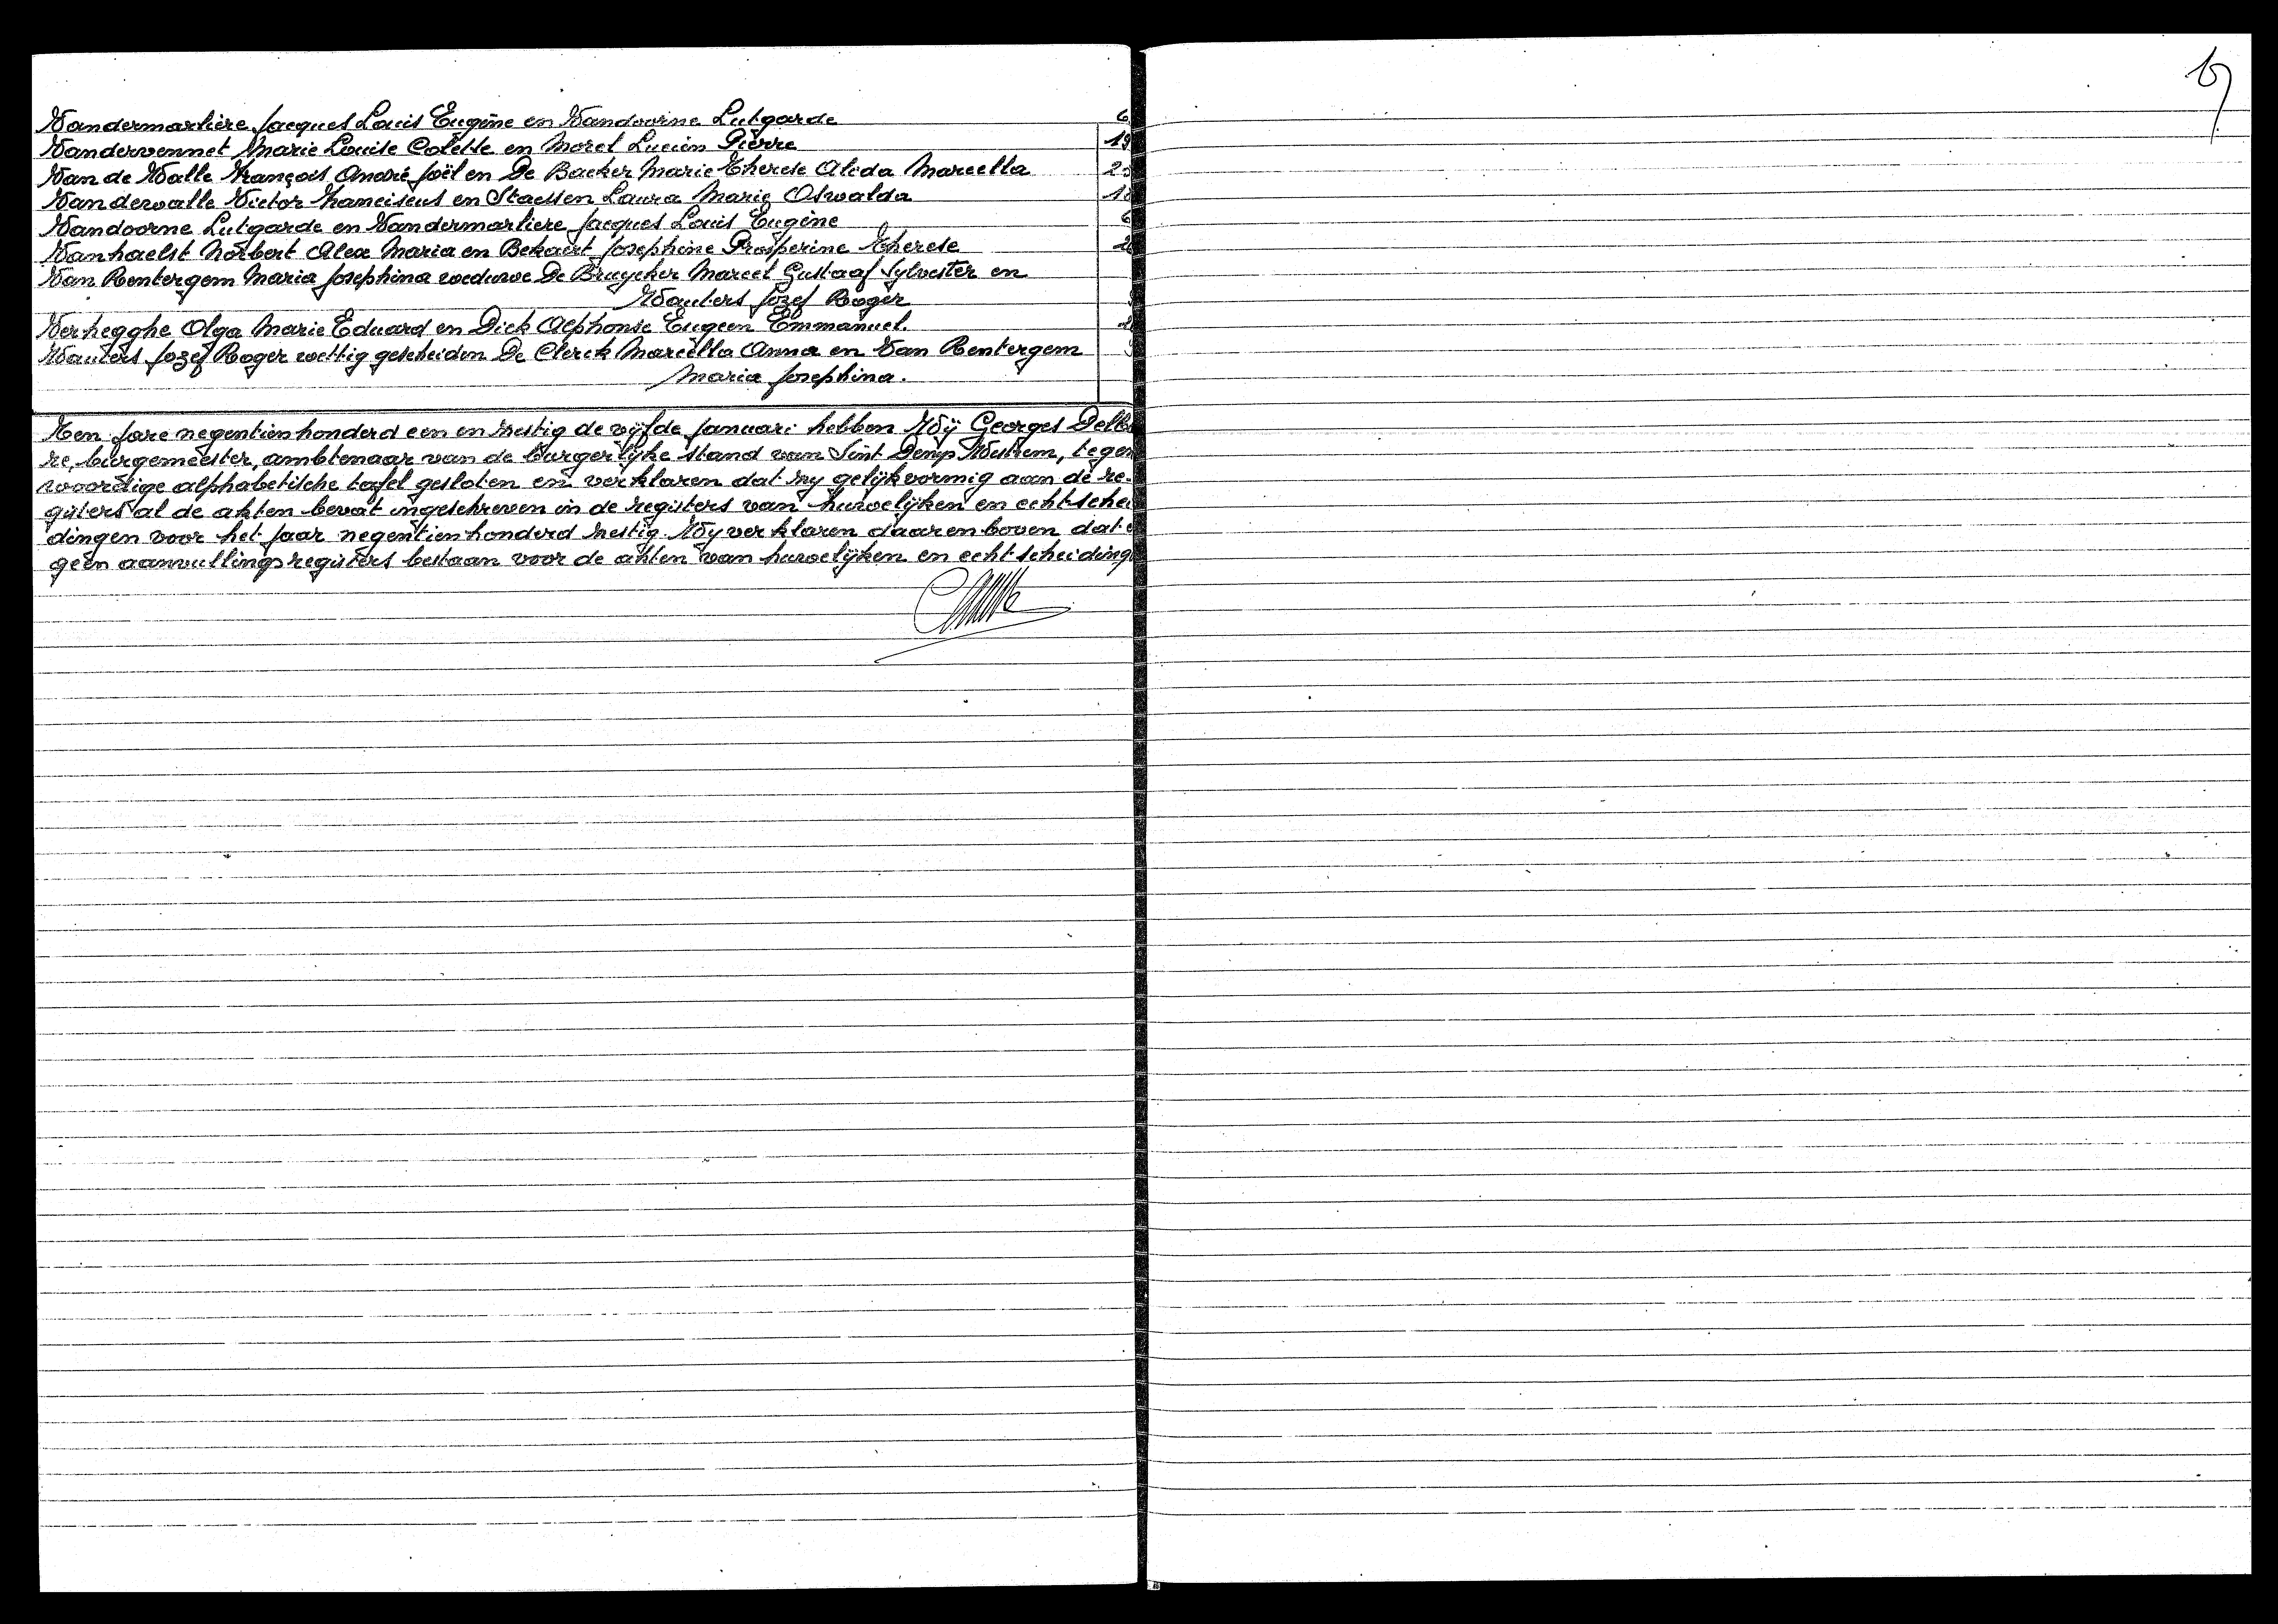 Vandermarliere Jacques Louis Eugène en Vandoorne Lutgarde 6
Vandervennet Marie Louise Colette en Morel Lucien Pierre 19
Van de Walle François André Joël en De Backer Marie Therese Alida Marcella
Vandewalle Victor Franciscus en Staessen Laura Marie Oswalda 18
Vandoorne Lutgarde en Vandermarliere Jacques Louis Eugène 6
Vanhaelst Norbert Alex Maria en Bekaert Josephine Prosperine Therese
Van Rentergem Maria Josephina weduwe De Bruycker Marcel Gustaaf Sylvester en
Wauters Jozef Roger
Verhegghe Olga Marie Eduard en Dick Alphonse Eugeen Emmanuel.
Wauters Jozef Roger wettig gescheiden De Clerck Marcella Anna en Van Rentergem
Maria Josephina.
Ten jare negentienhonderd een en zestig de vijfde januari hebben Wij Georges
re, burgemeester, ambtenaar van de burgerlijke stand van Sint Denijs Westrem, tegen
woordige alphabetische tafel gesloten en verklaren dat zij gelijkvormig aan de re-
gisters al de akten bevat ingeschreven in de registers van huwelijken en echtschei
dingen voor het jaar negentienhonderd zestig. Wij verklaren daarenboven dat
geen aanvullingsregisters bestaan voor de akten van huwelijken en echtscheiding